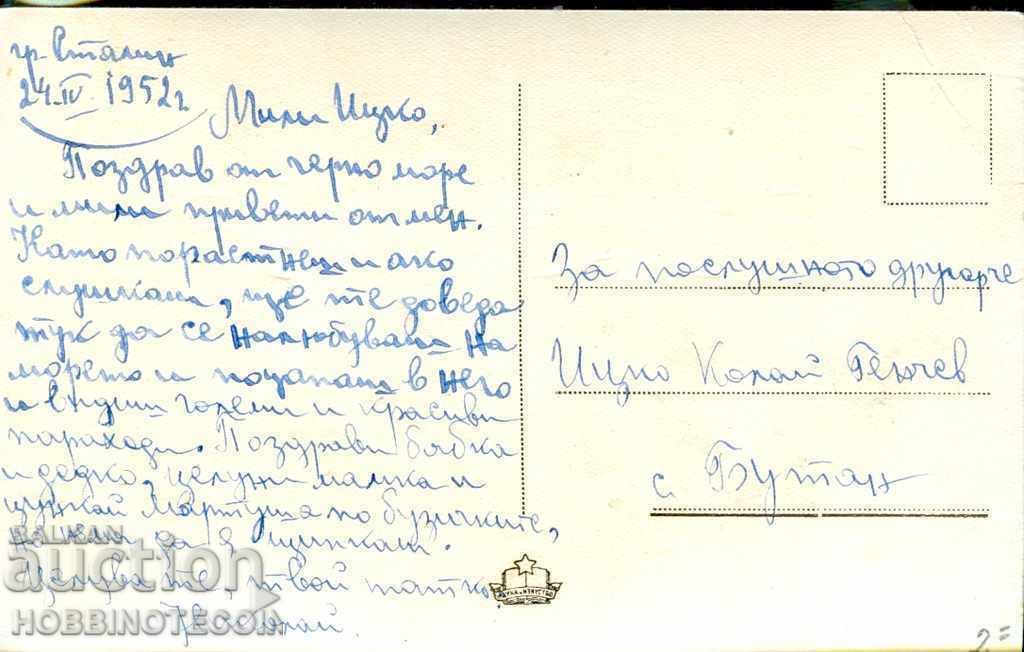 гр. Сталин
24.IV.1952 г.
Мили Ицко,
Поздрав от черно море
и мили привети от мен.
Като порастнеш и ако
слушкаш, ще те доведа
тук да се налюбуваш на
морето и поцапаш в него
и видиш големи и красиви
параходи. Поздрави бабка
и дедко, целуни мамка и
Мартуша по бузичките,
да я щипкаш.
Целува те, твой татко
За послушното другарче
Ицко Колай Генчев
с. Бутан
НАУКА И ИЗКУСТВО
BALKAN
auction
HOBBINOTECOIN
2=